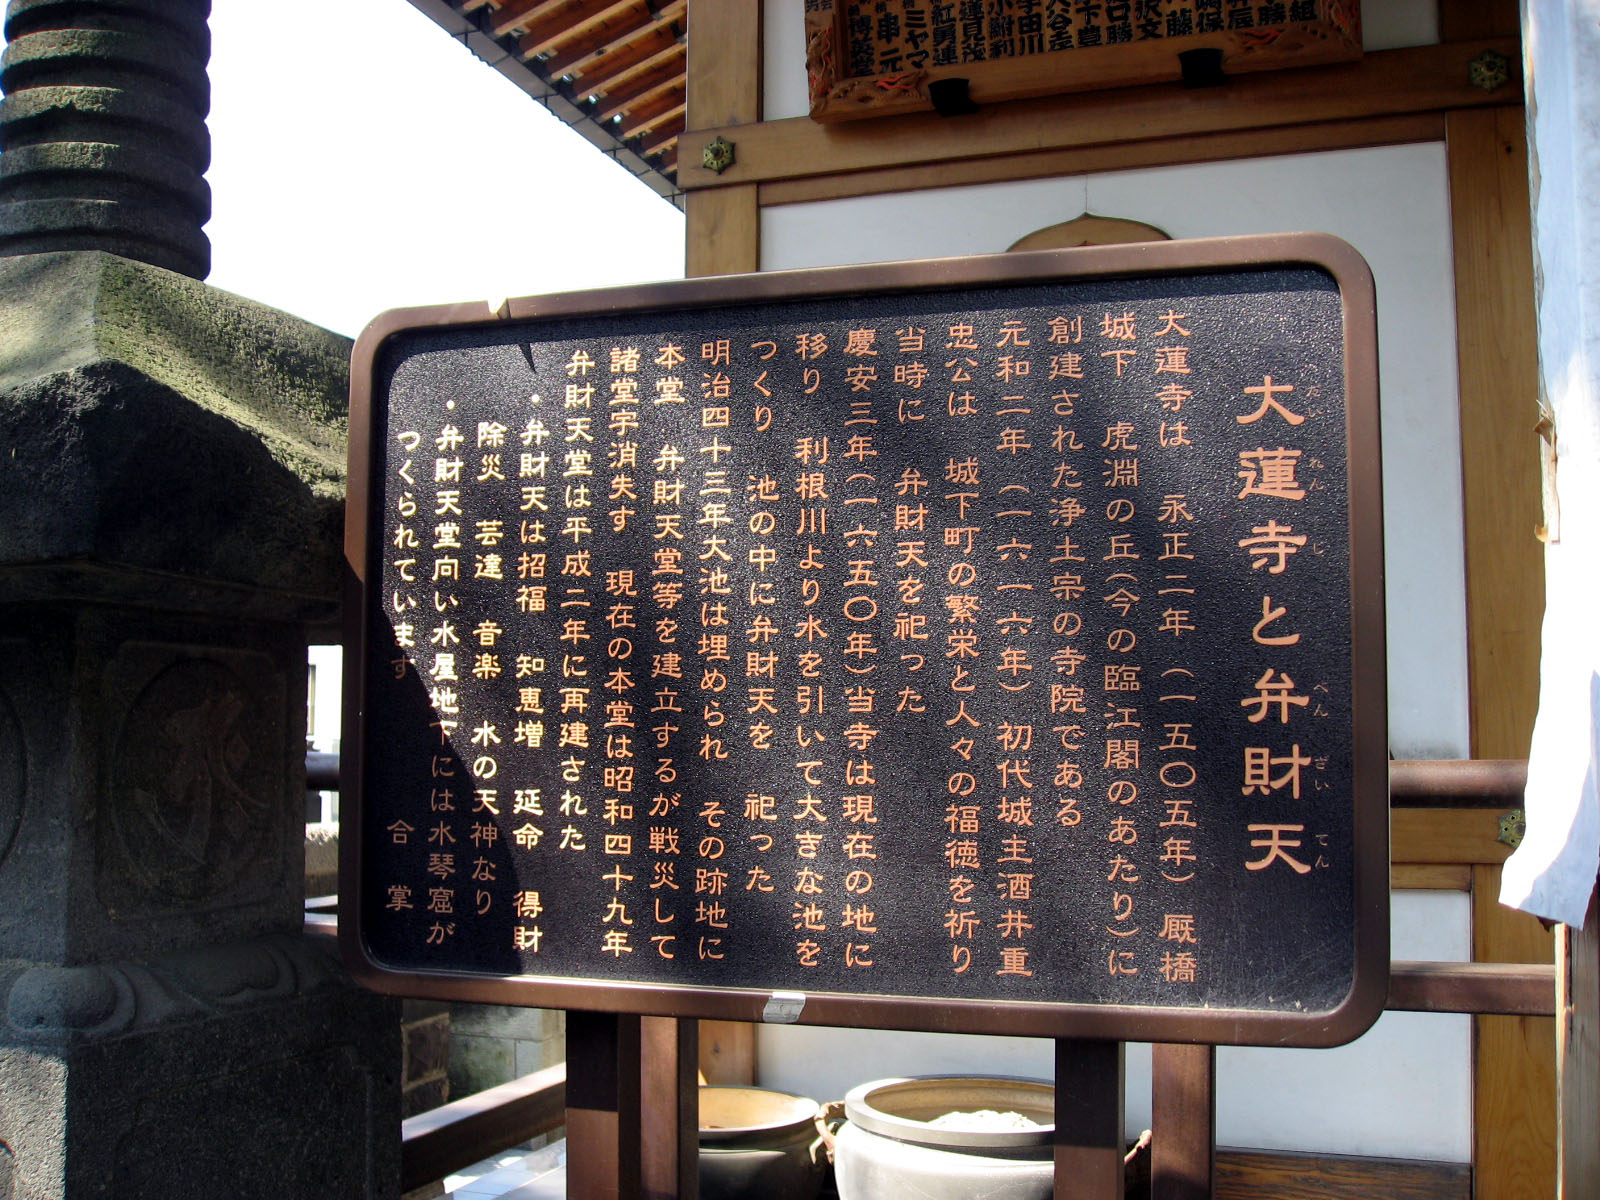 大蓮寺と弁財天
だいれんじ べんざいてん
大蓮寺は 永正二年（一五〇五年）厩橋
城下 虎淵の丘（今の臨江閣のあたり）に
創建された浄土宗の寺院である
元和二年（一六一六年）初代城主酒井重
忠公は 城下町の繁栄と人々の福徳を祈り
当時に 弁財天を祀った
慶安三年（一六五〇年）当寺は現在の地に
移り 利根川より水を引いて大きな池を
つくり 池の中に弁財天を 祀った
明治四十三年大池は埋められ その跡地に
本堂 弁財天堂等を建立するが戦災して
諸堂宇消失す 現在の本堂は昭和四十九年
弁財天堂は平成二年に再建された
・弁財天は招福 知恵増 延命 得財
除災 芸達 音楽 水の天神なり
・弁財天堂向い水屋地下には水琴窟が
つくられています
合 掌